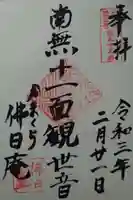 奉拝
令和三年
二月廿一日
南無十一面観世音
かまくら
佛日庵